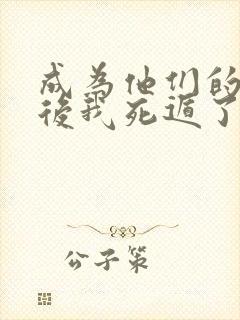 成为他们的
後我死遁了
公子策